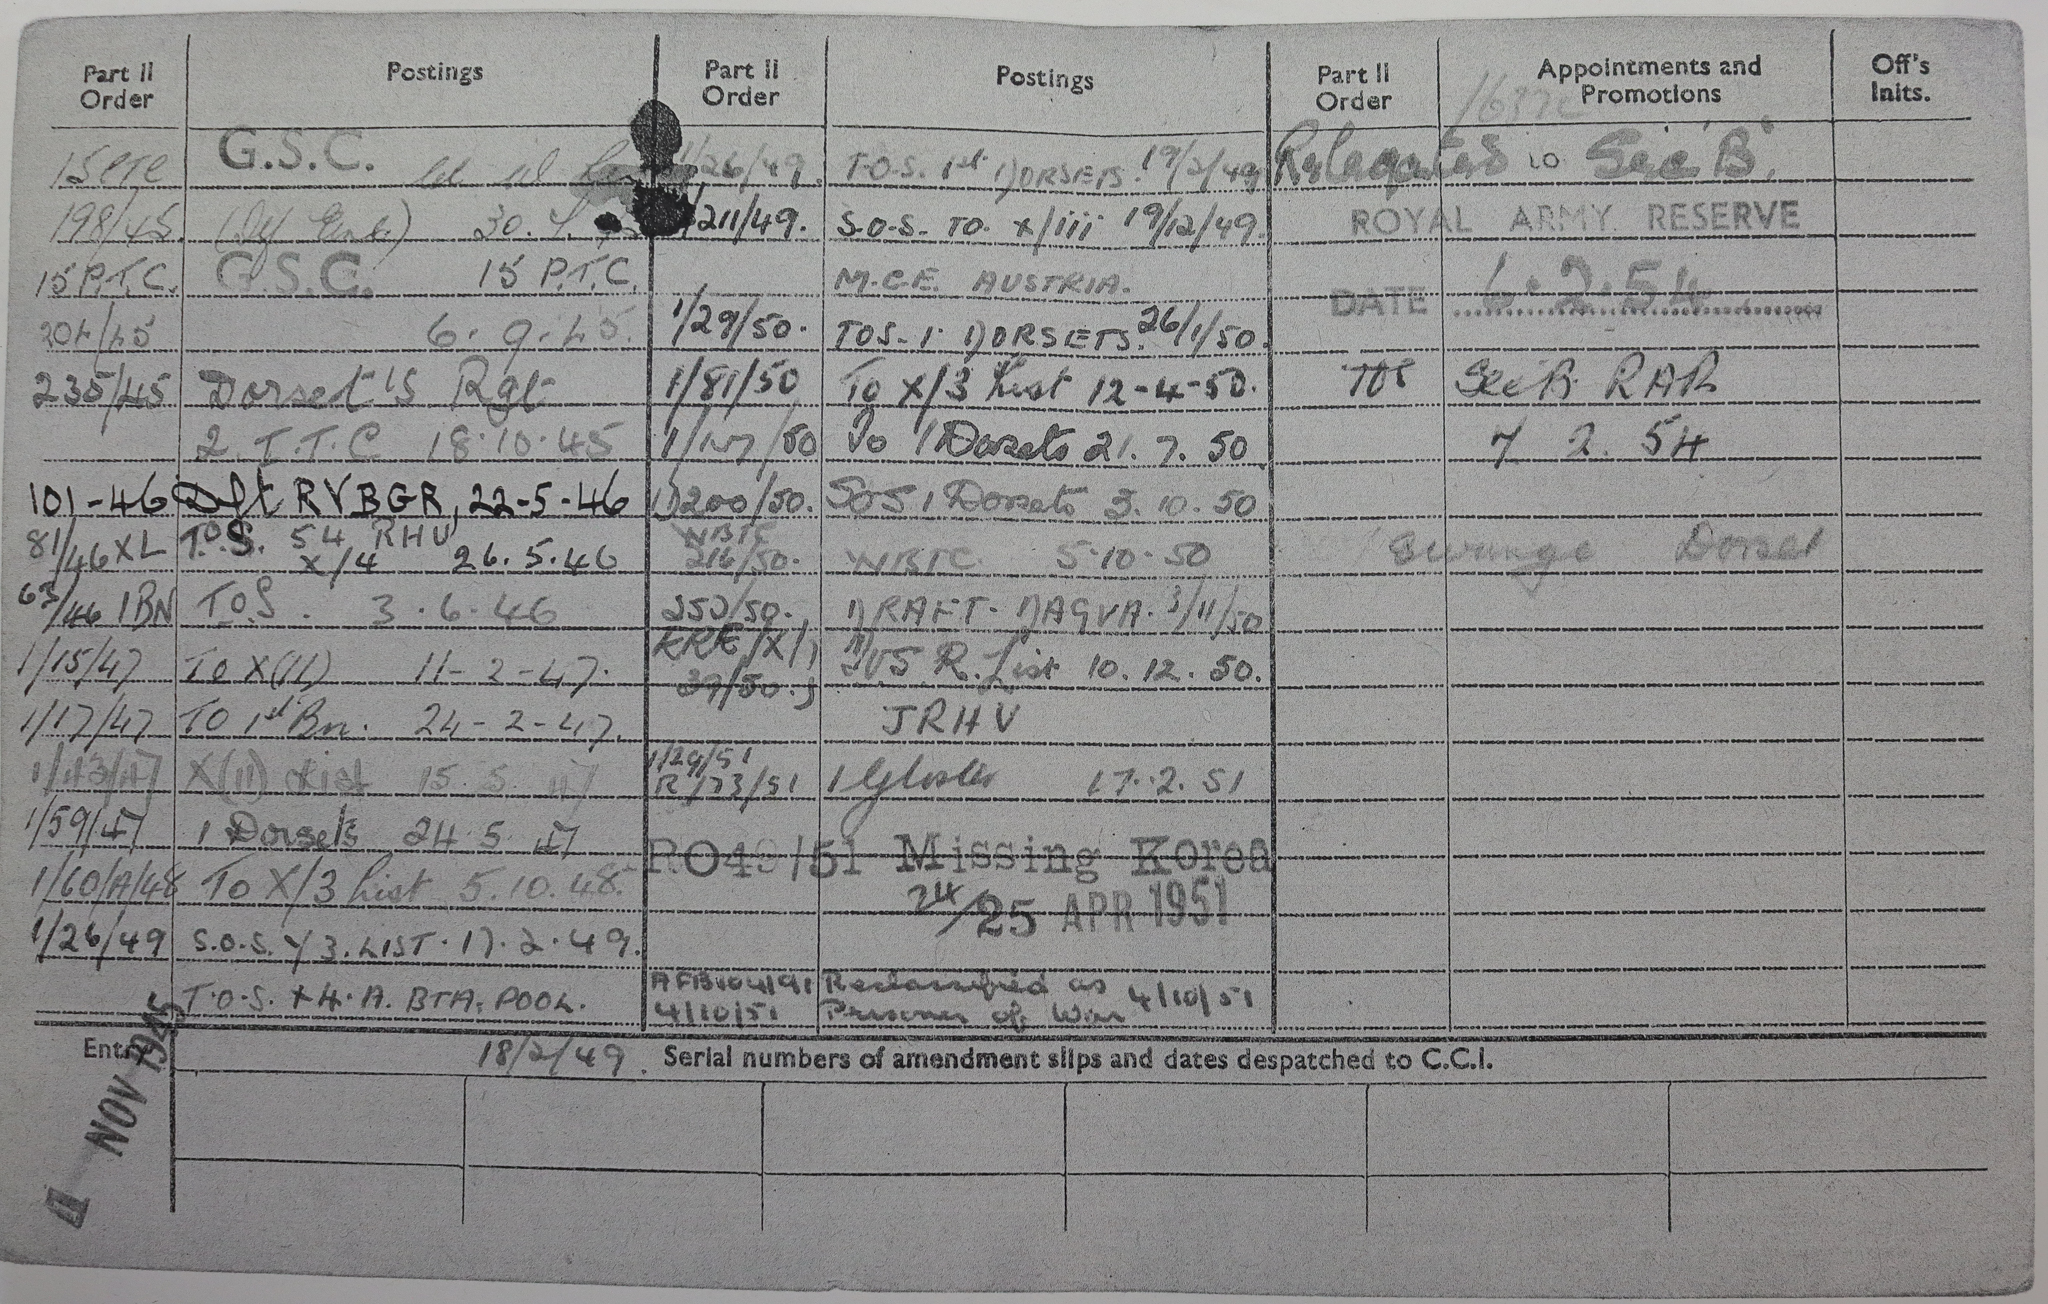 Part II Order
Postings
Part II Order
Postings
Part II Order
Appointments and Promotions
Off's Inits.
G.S.C.
198/45 30.
15 P.T.C. G.S.C. 15 P.T.C.
204/45 6.9.45.
235/45 Dorset's Rgt
2. I.T.C 18.10.45
101-46 Dft RVBGR, 22-5-46
81/46 XL T.O.S. 54 RHU X/4 26.5.46
63/46 1BN T.O.S. 3.6.46
1/15/47 TO X(11) 11-2-47.
1/17/47 TO 1st Bn. 24-2-47.
1/43/47 X(11) List 15.5.47
1/59/47 1 Dorsets 24.5.47
1/60/A/48 To X/3 List 5.10.48.
1/26/49 S.O.S. X/3. LIST. 17.2.49.
T.O.S. X4. A. BTA. POOL.
18/2/49.
1/26/49. T.O.S. 1st DORSETS. 19/2/49
1/211/49. S.O.S. TO. X/iii 19/12/49.
M.C.E. AUSTRIA.
1/29/50. TOS. 1. DORSETS. 26/1/50.
1/81/50 To X/3 List 12-4-50.
/50 To 1 Dorsets 21.7.50
200/50. SOS 1 Dorsets 3.10.50
WBTC 216/50. WBTC 5.10.50
253/50. DRAFT. DAGVA. 3/11/50
39/50. R. List 10.12.50.
JRHU
1/29/51
R/73/51 1 Glosters 17.2.51
RO49/51 Missing Korea
24/25 APR 1951
4/10/51 Reclassified as Prisoner of War 4/10/51
Relegated to Sec 'B'
ROYAL ARMY RESERVE
DATE 6.2.54
TOS Sec B. RAR
7 2. 54
Swanage Dorset
Serial numbers of amendment slips and dates despatched to C.C.I.
NOV 1945